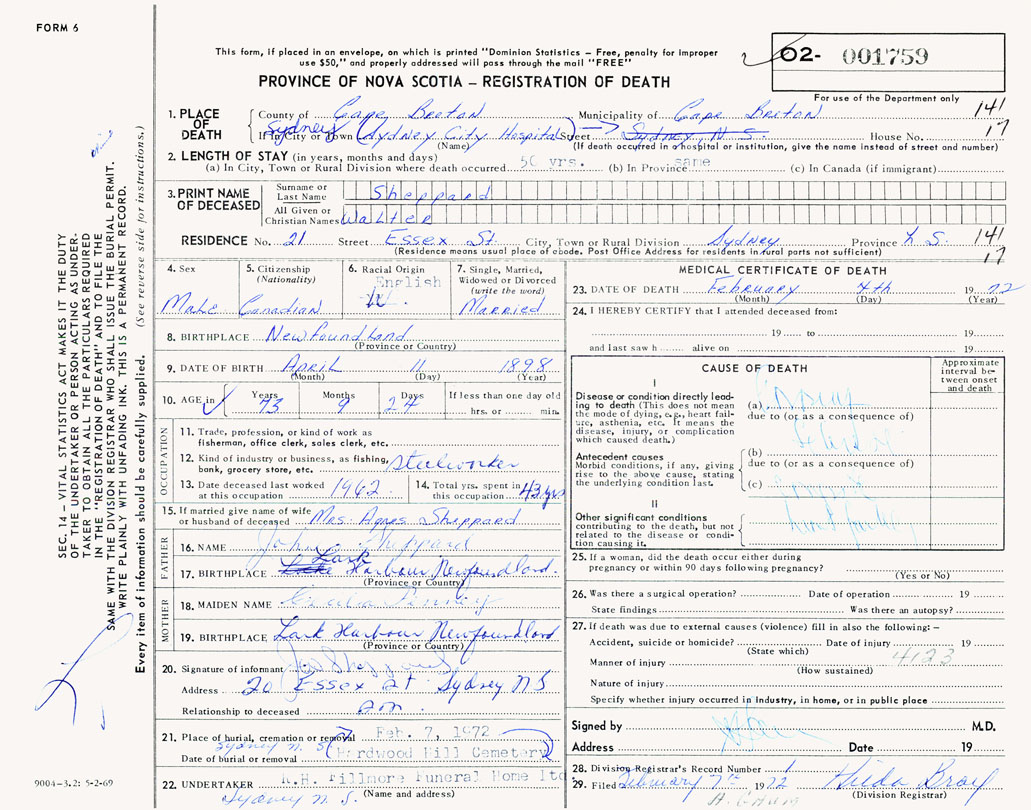 FORM 6
This form, if placed in an envelope, on which is printed "Dominion Statistics — Free, penalty for improper
use $50," and properly addressed will pass through the mail "FREE"
PROVINCE OF NOVA SCOTIA — REGISTRATION OF DEATH
O2- 001759
For use of the Department only
141
17
1. PLACE OF DEATH
County of Cape Breton Municipality of Cape Breton
If in City or Town Sydney (Sydney City Hospital) Street Sydney N.S. House No.
(Name) (If death occurred in a hospital or institution, give the name instead of street and number)
2. LENGTH OF STAY (in years, months and days)
(a) In City, Town or Rural Division where death occurred 50 yrs. (b) In Province same (c) In Canada (if immigrant)
3. PRINT NAME OF DECEASED
Surname or Last Name Sheppard
All Given or Christian Names Walter
RESIDENCE No. 21 Street Essex St. City, Town or Rural Division Sydney Province N S. 141
(Residence means usual place of abode. Post Office Address for residents in rural parts not sufficient) 17
4. Sex Male
5. Citizenship (Nationality) Canadian
6. Racial Origin English
7. Single, Married, Widowed or Divorced (write the word) Married
8. BIRTHPLACE Newfoundland
(Province or Country)
9. DATE OF BIRTH April 11 1898
(Month) (Day) (Year)
10. AGE in Years 73 Months 9 Days 24 If less than one day old hrs. or min.
OCCUPATION
11. Trade, profession, or kind of work as fisherman, office clerk, sales clerk, etc.
12. Kind of industry or business, as fishing, bank, grocery store, etc. Steelworker
13. Date deceased last worked at this occupation 1962
14. Total yrs. spent in this occupation 43 yrs
15. If married give name of wife or husband of deceased Mrs. Agnes Sheppard
FATHER
16. NAME John Sheppard
17. BIRTHPLACE Lark Harbour Newfoundland.
(Province or Country)
MOTHER
18. MAIDEN NAME
19. BIRTHPLACE Lark Harbour Newfoundland
(Province or Country)
20. Signature of informant Sheppard
Address 20 Essex St Sydney N S
Relationship to deceased
21. Place of burial, cremation or removal Feb. 7, 1972
Sydney N. S. Hardwood Hill Cemetery
Date of burial or removal
22. UNDERTAKER R.H. Fillmore Funeral Home Ltd
Sydney N. S. (Name and address)
MEDICAL CERTIFICATE OF DEATH
23. DATE OF DEATH February 4th 1972
(Month) (Day) (Year)
24. I HEREBY CERTIFY that I attended deceased from:
19 to 19
and last saw h alive on 19
CAUSE OF DEATH
Approximate interval between onset and death
I
Disease or condition directly leading to death (This does not mean the mode of dying, e.g., heart failure, asthenia, etc. It means the disease, injury, or complication which caused death.)
(a)
due to (or as a consequence of)
Antecedent causes
Morbid conditions, if any, giving rise to the above cause, stating the underlying condition last.
(b)
due to (or as a consequence of)
(c)
II
Other significant conditions contributing to the death, but not related to the disease or condition causing it.
25. If a woman, did the death occur either during
pregnancy or within 90 days following pregnancy?
(Yes or No)
26. Was there a surgical operation? Date of operation 19
State findings Was there an autopsy?
27. If death was due to external causes (violence) fill in also the following:—
Accident, suicide or homicide? Date of injury 19
(State which) 4123
Manner of injury
(How sustained)
Nature of injury
Specify whether injury occurred in industry, in home, or in public place
Signed by M.D.
Address Date 19
28. Division Registrar's Record Number 1
29. Filed February 7th 1972 Hilda Bray
(Division Registrar)
9004-3.2: 5-2-69
SEC. 14 — VITAL STATISTICS ACT MAKES IT THE DUTY
OF THE UNDERTAKER OR PERSON ACTING AS UNDER-
TAKER TO OBTAIN ALL THE PARTICULARS REQUIRED
IN THE "REGISTRATION OF DEATH" AND TO FILE THE
SAME WITH THE DIVISION REGISTRAR WHO SHALL ISSUE THE BURIAL PERMIT.
WRITE PLAINLY WITH UNFADING INK. THIS IS A PERMANENT RECORD.
Every item of information should be carefully supplied. (See reverse side for instructions.)